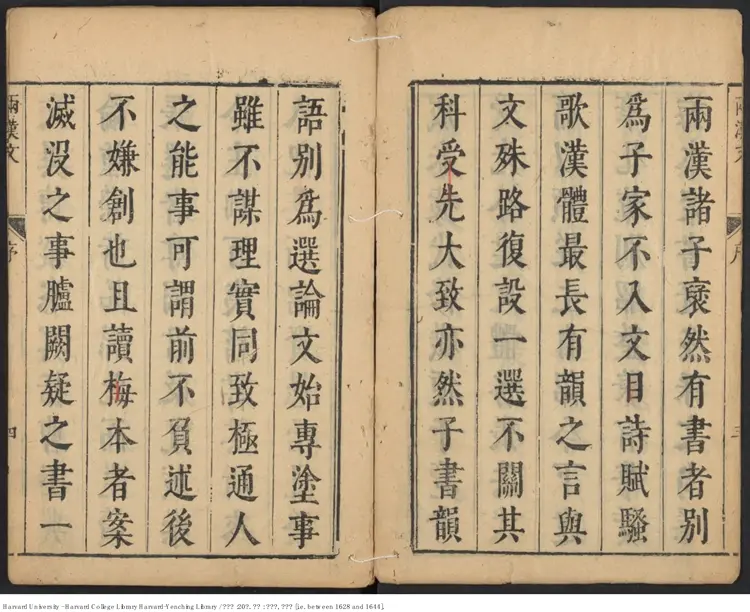 兩漢諸子裒然有書者別
爲子家不入文目詩賦騷
歌漢體最長有韻之言與
文殊路復設一選不關其
科受先大致亦然子書韻
兩漢文
序
三
語別爲選論文始專塗事
雖不謀理實同致極通人
之能事可謂前不負述後
不嫌創也且讀梅本者案
滅沒之事臚闕疑之書一
兩漢文
序
四
Harvard University - Harvard College Library Harvard-Yenching Library / ??? :20?. ?? : ???, ??? [i.e. between 1628 and 1644].